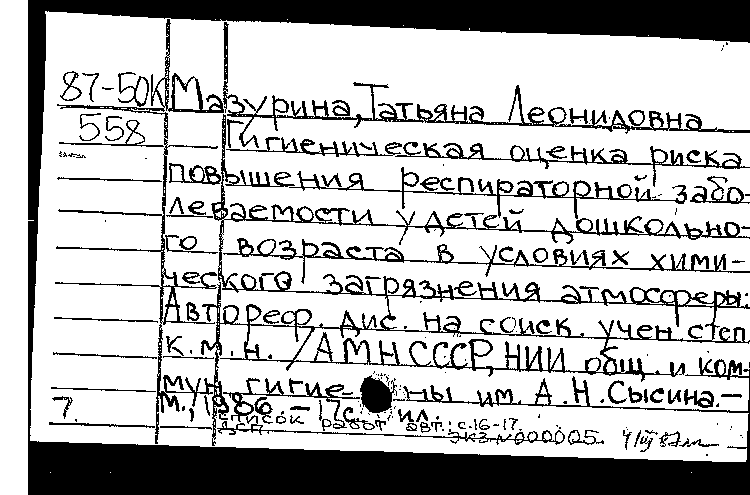 87-50К Мазурина, Татьяна Леонидовна
558 Гигиеническая оценка риска
повышения респираторной забо-
леваемости у детей дошкольно-
го возраста в условиях хими-
ческого загрязнения атмосферы:
Автореф. дис. на соиск. учен степ.
к.м.н. /АМН СССР, НИИ общ. и ком-
мун. гигиены им. А.Н.Сысина.—
7. М., 1986. — 17с. ил.
Список работ авт.: с.16-17.
ДСП ЭКЗ №000005.